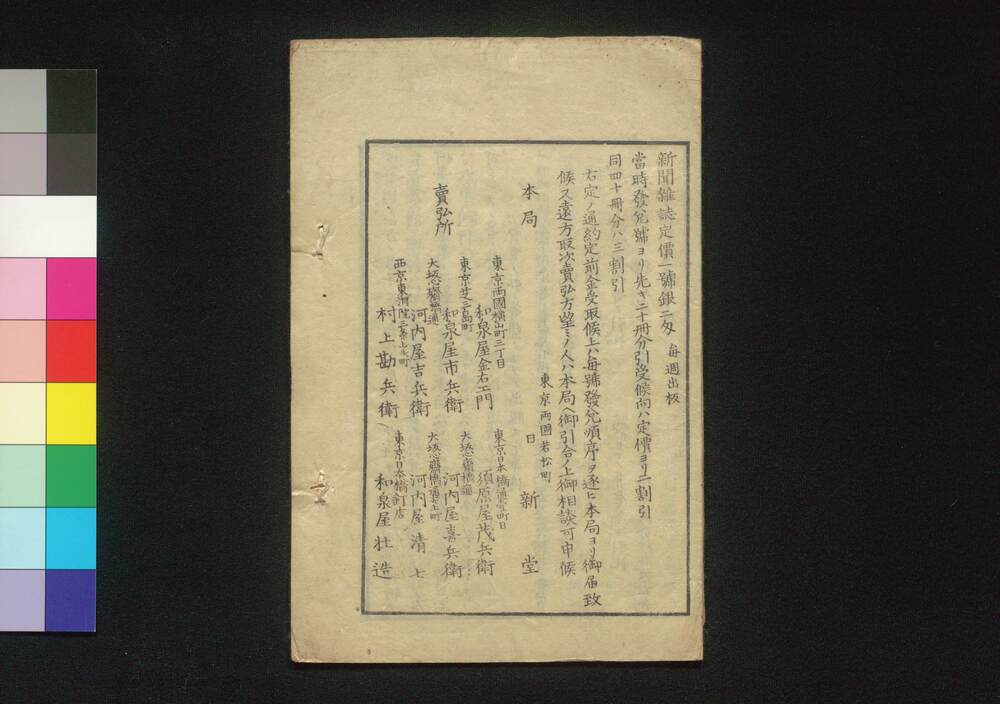 新聞雜誌定價一號銀二匁 每週出板
當時發兌號ヨリ先キ二十冊分引受候向ハ定價ヨリ二割引
同四十冊分ハ三割引
右定ノ通約定前金受取候上ハ每號發兌順序ヲ逐ヒ本局ヨリ御届致
候又遠方取次賣弘方望ミノ人ハ本局ヘ御引合ノ上御相談可申候
東京両國若松町
本局 日新堂
賣弘所
東京両國横山町三丁目
和泉屋金右エ門
東京日本橋通壹町目
須原屋茂兵衛
東京芝三島町
和泉屋市兵衛
大坂心齋橋通
河内屋喜兵衛
大坂心齋橋通
河内屋吉兵衛
大坂心齋橋通
河内屋清七
西京東洞院三条上ル町
村上勘兵衛
東京日本橋釘店
和泉屋壯造